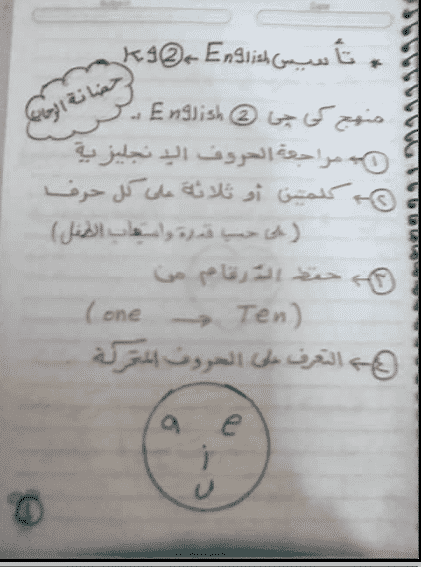 * تأسيس English ← kg②
حضانة الرحاب
منهج كى جى ② English ..
①← مراجعة الحروف الإنجليزية
②← كلمتين أو ثلاثة على كل حرف
(على حسب قدرة واستيعاب الطفل)
③← حفظ الأرقام من
(one → Ten)
④← التعرف على الحروف المتحركة
a e
i
u
①